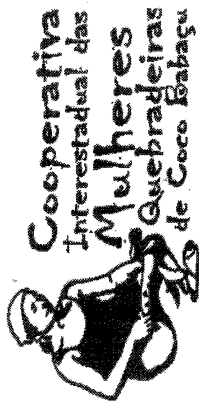 Cooperativa
Interestadual das
Mulheres
Quebradeiras
de Coco Babaçu